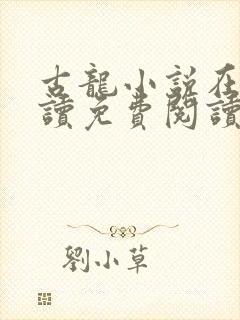 古龍小說在
讀免費閱讀
劉小草